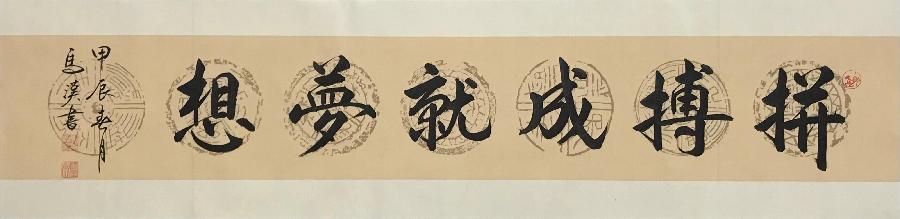 拼搏成就夢想
甲辰春月
馬漢書